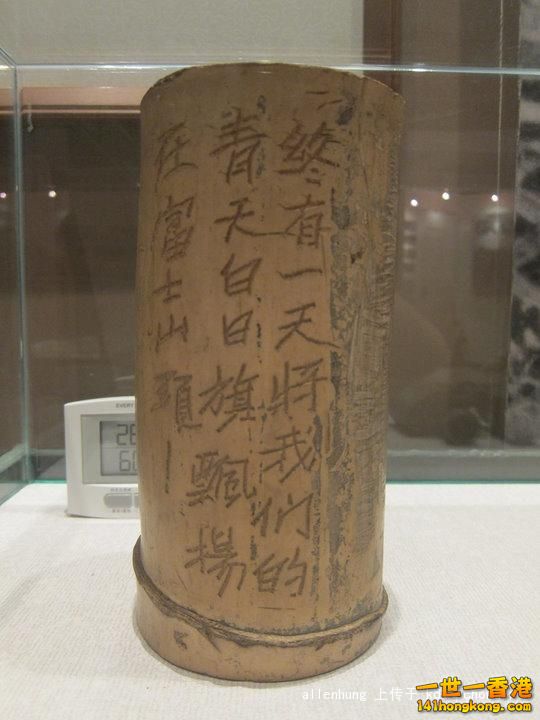 終有一天將我们的
青天白日旗飄揚
在富士山頭
EVERY
allenhung 上传于
一世一香港
141hongkong.com